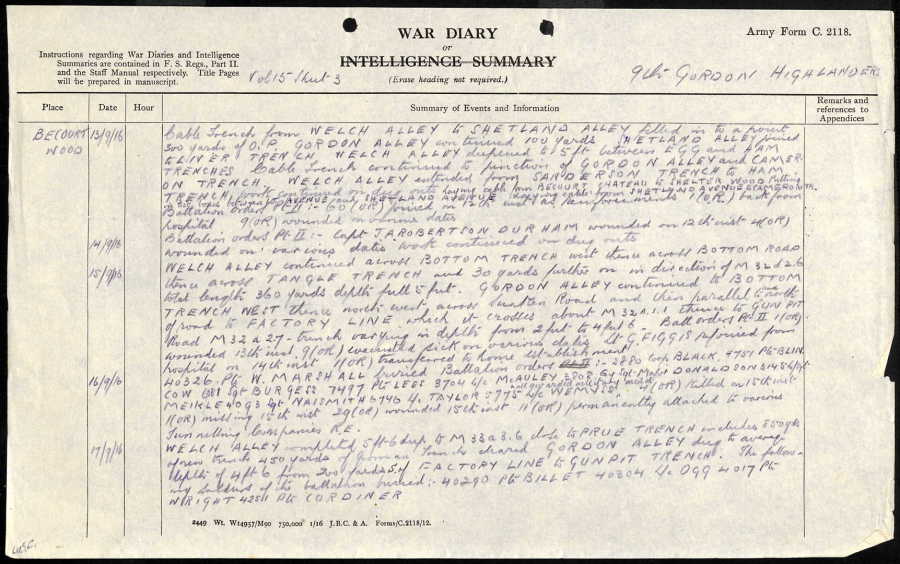 WAR DIARY
or
INTELLIGENCE SUMMARY
(Erase heading not required.)
Army Form C. 2118.
Instructions regarding War Diaries and Intelligence
Summaries are contained in F. S. Regs., Part II.
and the Staff Manual respectively. Title Pages
will be prepared in manuscript.
Vol 15 Sheet 3
9th GORDON HIGHLANDERS
Place
Date
Hour
Summary of Events and Information
Remarks and
references to
Appendices
BECOURT WOOD
13/9/16
Cable Trench from WELCH ALLEY to SHETLAND ALLEY filled in to a point
300 yards of O.P. GORDON ALLEY continued 100 yards SHETLAND ALLEY joined
to LIVER TRENCH WELCH ALLEY deepened to 5 ft between EGG and HAM
TRENCHES Cable Trench continued to junction of GORDON ALLEY and CAMER-
ON TRENCH. WELCH ALLEY extended from SANDERSON TRENCH to HAM
TRENCH, work continued on dug outs laying cable from BECOURT CHATEAU to SHELTER WOOD
AVENUE and SHETLAND AVENUE cable from SHETLAND AVENUE CAMERON TR.
Battalion orders Pt II :- 60 (OR) joined on 12th inst as reinforcements 1(OR) back from
hospital 9(OR) wounded on various dates
14/9/16
Battalion orders Pt II :- Capt J.A. ROBERTSON DURHAM wounded on 12th inst 4(OR)
wounded on various dates work continued on dug outs
15/9/16
WELCH ALLEY continued across BOTTOM TRENCH west thence across BOTTOM ROAD
thence across TANGLE TRENCH and 30 yards further on in direction of M 32 d 2.6
total length 360 yards depth full 5 feet. GORDON ALLEY continued to BOTTOM
TRENCH WEST thence north west across Sunken Road and then parallel to north
of road to FACTORY LINE which it crosses about M 32 a 1.1 thence to GUN PIT
Road M 32 a 27 - trench varying in depth from 2 feet to 4 feet 6. Batt orders Pt II 1(OR)
wounded 13th inst, 9(OR) evacuated sick on various dates Lt G. FIGGIS rejoined from
hospital on 14th inst 1(OR) transferred to home establishment
16/9/16
40326 Pte W. MARSHALL buried Battalion orders Pt II :- 3880 Cop BLACK, 4751 Pte BLIN
COW 1381 Sgt BURGESS 7497 Pte LEES 3704 L/c McAULEY 3808 Sy Sgt-Major DONALDSON 8145 L/Sgt
MEIKLE 4093 Sgt NAISSMITH 6746 L/c TAYLOR 5775 L/c WEMYSS all awarded military medal 4(OR) killed on 15th inst
1(OR) missing 15th inst 29(OR) wounded 15th inst 11(OR) permanently attached to various
Tunnelling Companies R.E.
17/9/16
WELCH ALLEY completed 5 ft 6 deep to M 33 a 3.6 close to PRUE TRENCH includes 550 yds
of new trench 450 yards of German Trench cleared GORDON ALLEY dug to average
depth of 4 ft 6 from 200 yards S. of FACTORY LINE to GUN PIT TRENCH. The follow-
ing soldiers of the battalion buried:- 40290 Pte BILLET 40304 L/c OGG 4017 Pte
WRIGHT 4251 Pte CORDINER
2449 Wt. W14957/M90 750,000 1/16 J.B.C. & A. Forms/C.2118/12.